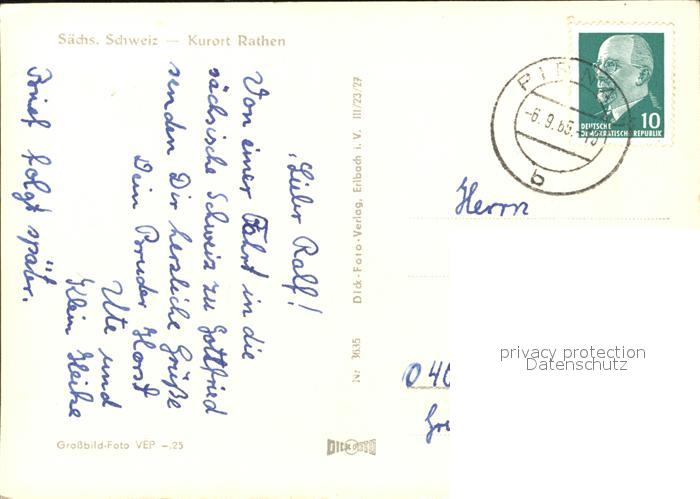 Sächs. Schweiz — Kurort Rathen
Lieber Ralf!
Von einer Fahrt in die
sächsische Schweiz zu Gottfried
senden Dir herzliche Grüße
Dein Bruder Horst
Ute und
Klein Heike
Brief folgt später.
Großbild-Foto VEP -.25
Nr 3635 Dick-Foto-Verlag, Erlbach i. V. III/23/27
DICK FOTO
PIRNA
-6.9.65.
b
DEUTSCHE
DEMOKRATISCHE REPUBLIK
10
Herrn
privacy protection
Datenschutz